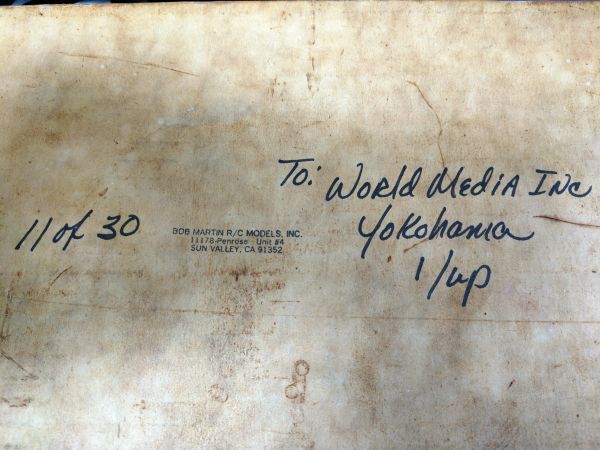 To: World Media Inc
Yokohama
1/up
11 of 30
BOB MARTIN R/C MODELS, INC.
11178-Penrose - Unit #4
SUN VALLEY, CA 91352